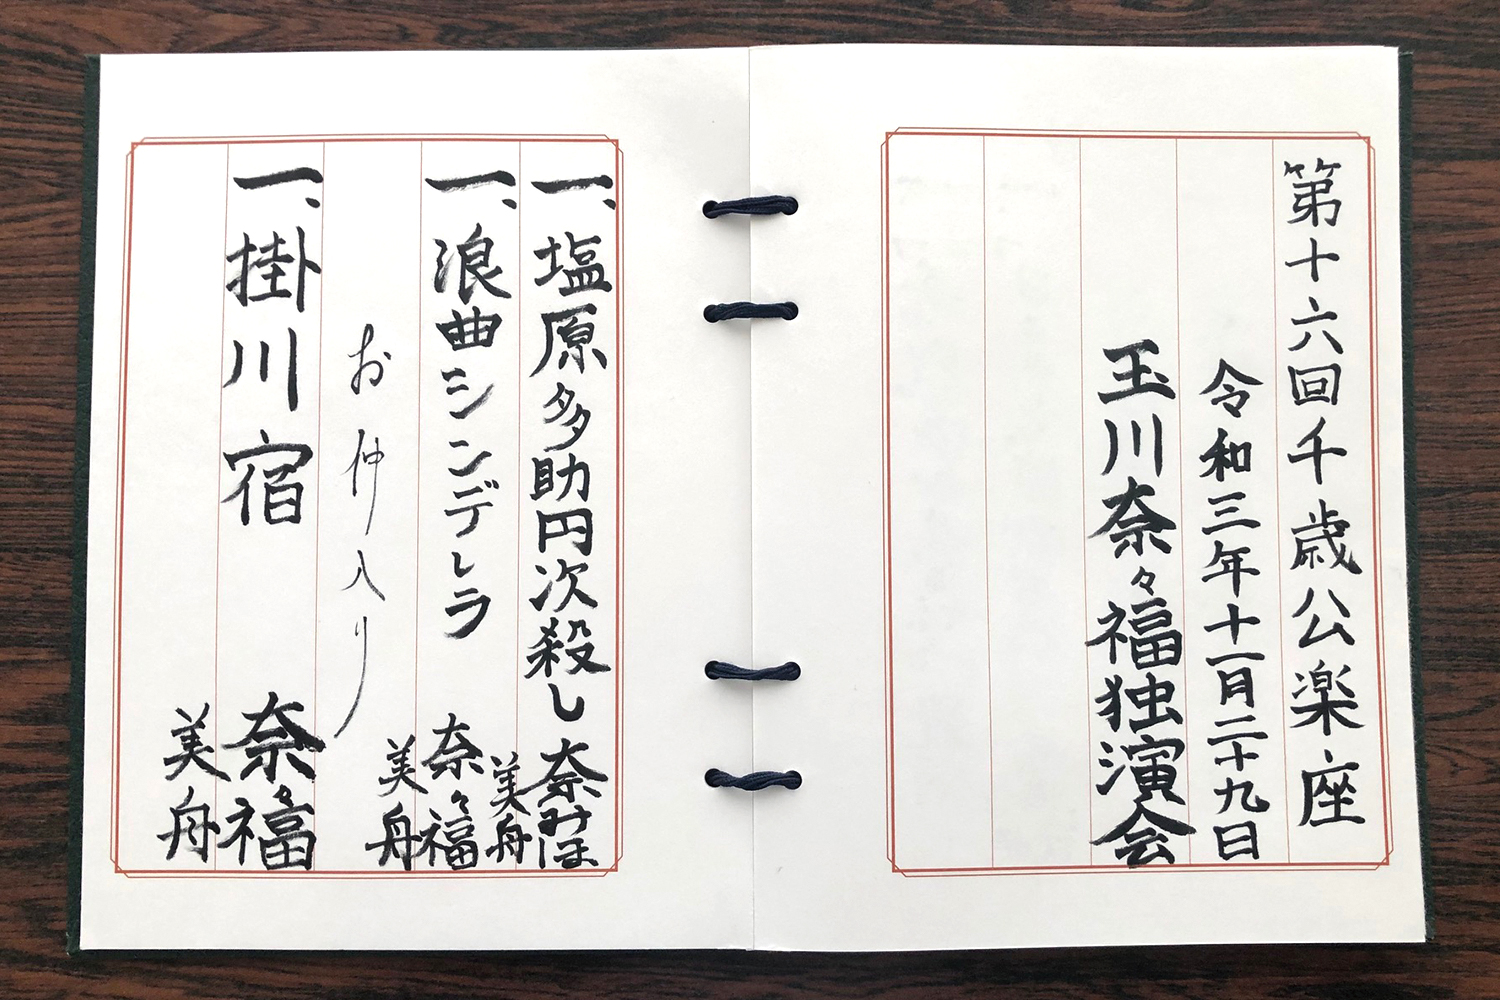 第十六回千歳公楽座
令和三年十一月二十九日
玉川奈々福独演会
一、塩原多助円次殺し 奈みほ
美舟
一、浪曲シンデレラ 奈々福
美舟
お仲入り
一、掛川宿 奈々福
美舟